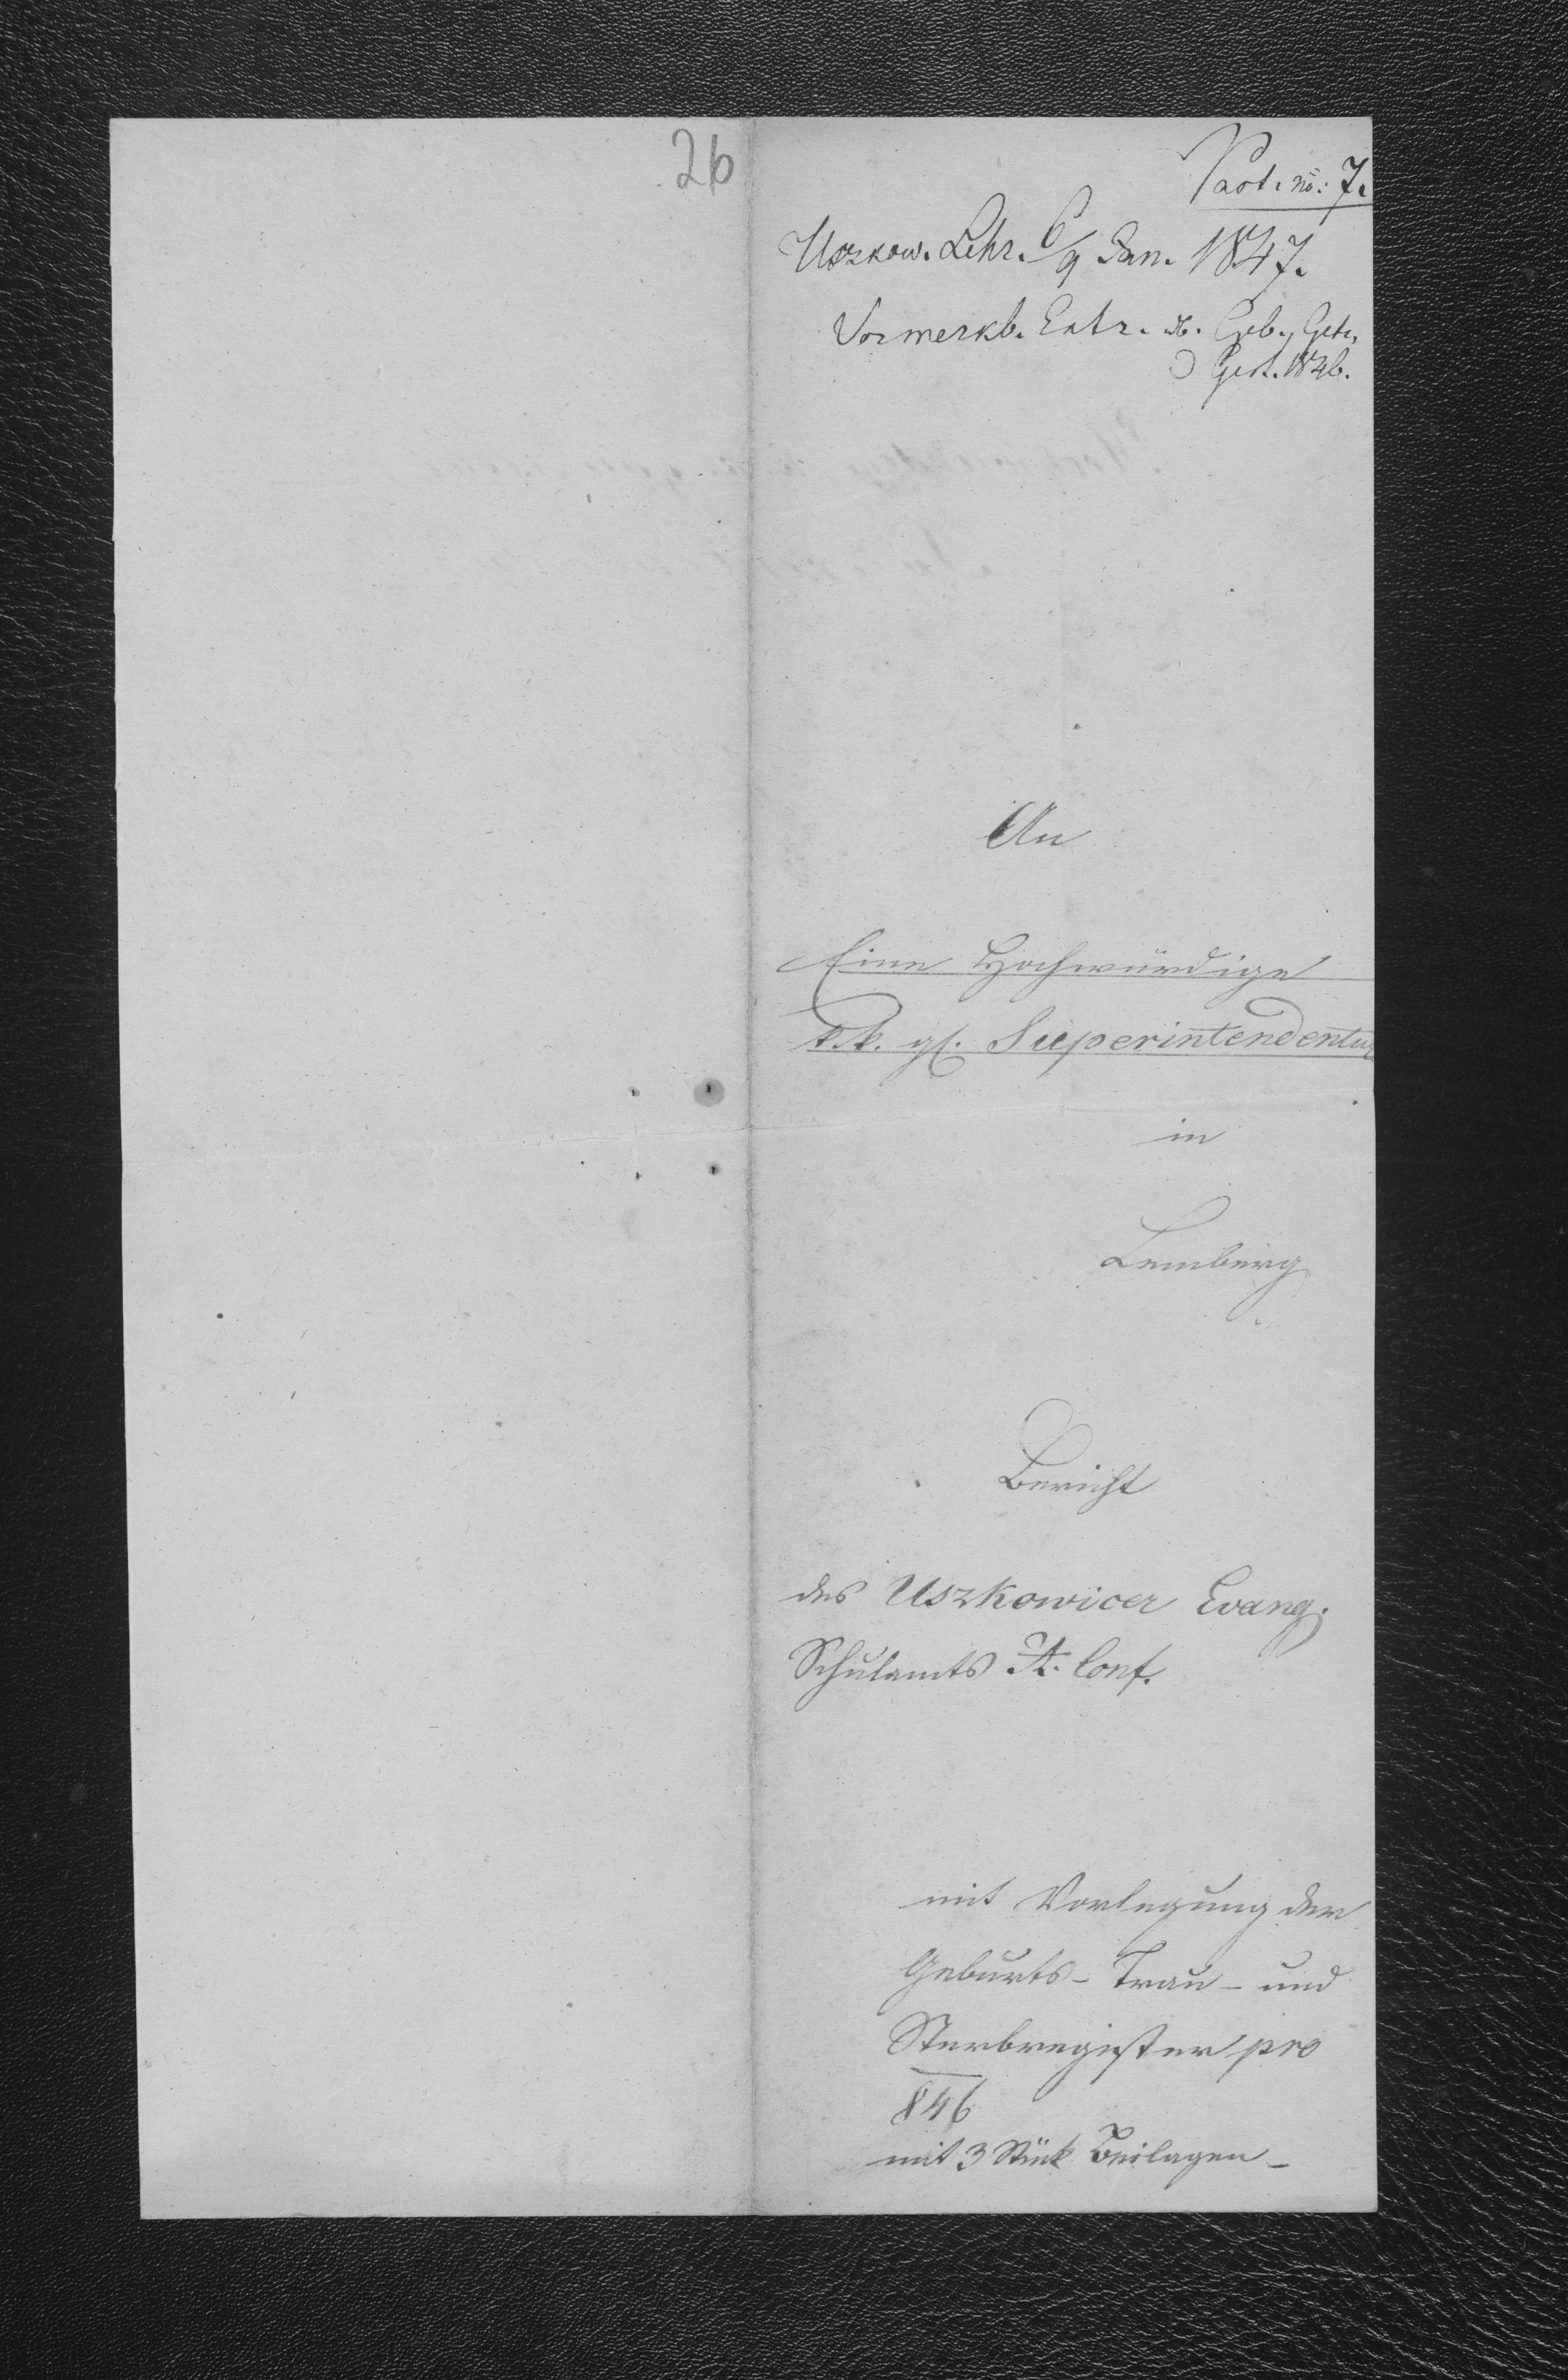 26
Prot. no: 7.
Uszkow. Lehr. 6/9 Jan. 1847.
Vormerkb. Extr. d. Geb., Getr.,
Gest. 1846.
An
Eine Hochwürdige
k. k. gl. Superintendentur
in
Lemberg
Bericht
des Uszkowicer Evang.
Schulamts A. Conf.
mit Vorlegung der
Geburts- Trau- und
Sterbregister pro
846
mit 3 Stück Beilagen